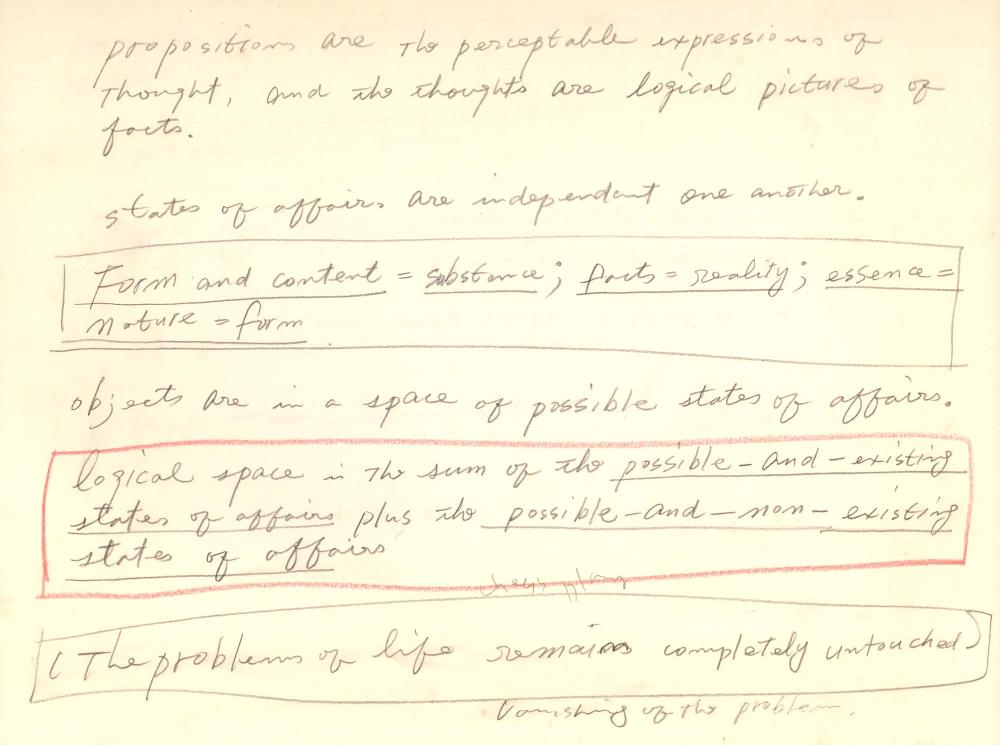 propositions are the perceptable expressions of
thought, and the thoughts are logical pictures of
facts.
states of affairs are independant one another.
Form and content = substance; facts = reality; essence =
nature = form
objects are in a space of possible states of affairs.
logical space is the sum of the possible-and-existing
states of affairs plus the possible-and-non-existing
states of affairs
(The problems of life remains completely untouched)
Vanishing of the problem.